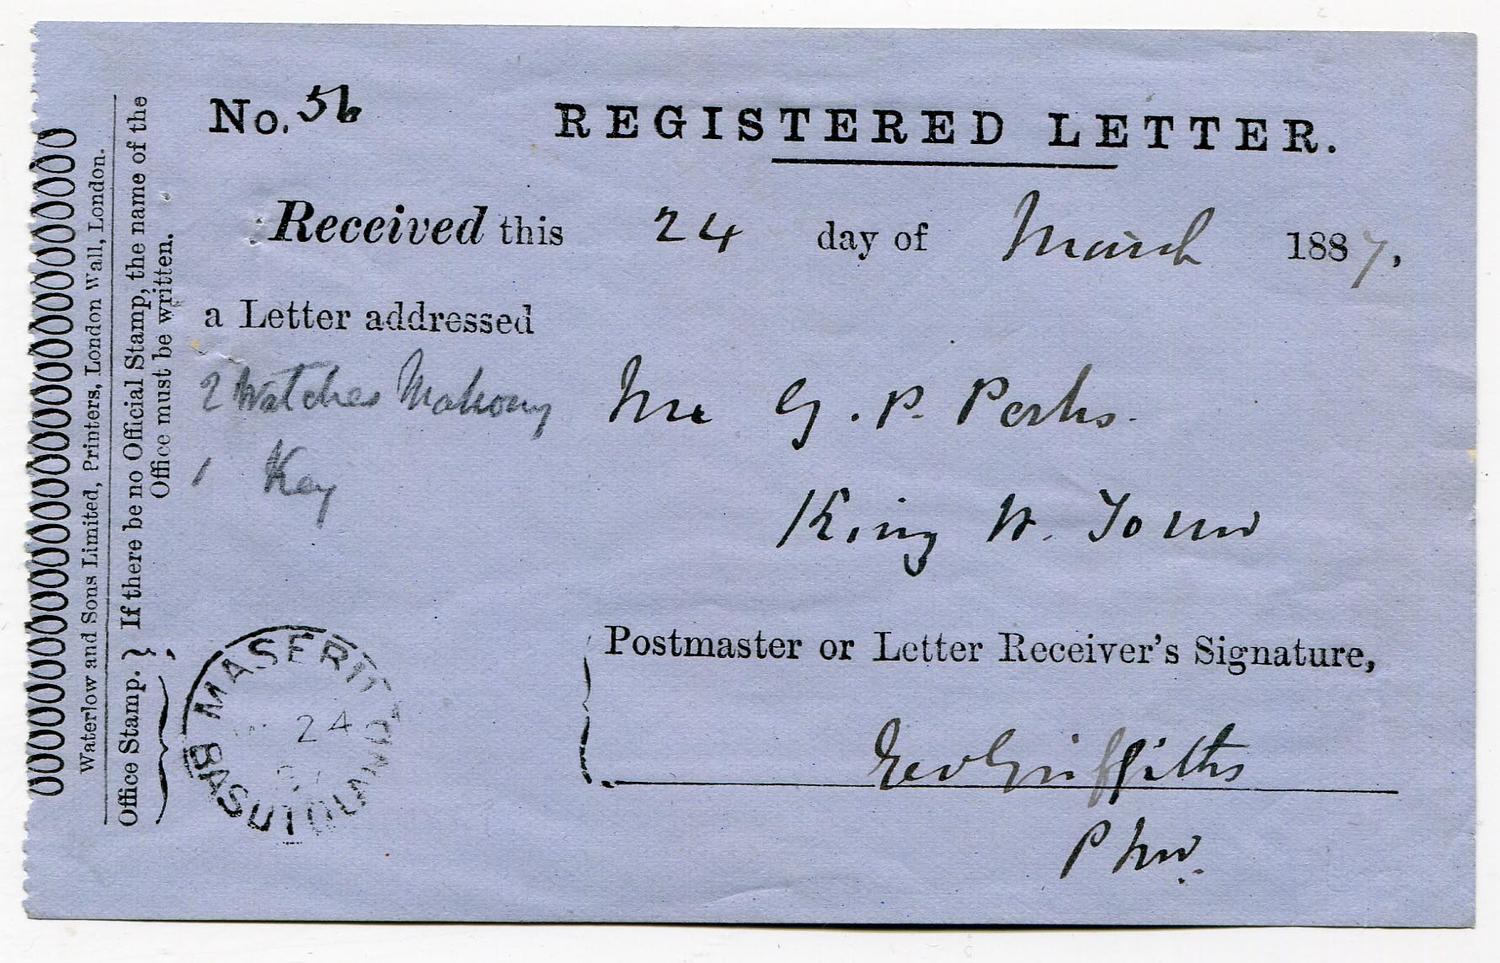 No. 56
REGISTERED LETTER.
Received this 24 day of March 1887,
a Letter addressed
2 Watches Mahony
1 Key
Mr G. P. Perks.
King W. Town
Postmaster or Letter Receiver's Signature,
Geo Griffiths
P Mr.
MASERU
BASUTOLAND
24
Waterlow and Sons Limited, Printers, London Wall, London.
Office Stamp. } If there be no Official Stamp, the name of the
Office must be written.